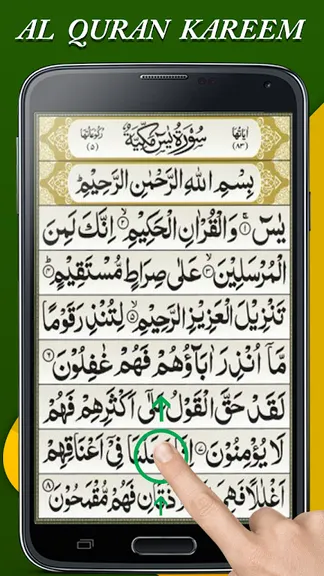 AL QURAN KAREEM
اٰیَاتُهَا (۸۳) سُوْرَةُ یٰسٓ مَكِّیَّةٌ رُكُوْعَاتُهَا (۵)
بِسْمِ اللهِ الرَّحْمٰنِ الرَّحِیْمِ
یٰسٓ ۚ﴿۱﴾ وَالْقُرْاٰنِ الْحَكِیْمِ ۙ﴿۲﴾ اِنَّكَ لَمِنَ
الْمُرْسَلِیْنَ ۙ﴿۳﴾ عَلٰی صِرَاطٍ مُّسْتَقِیْمٍ ؕ﴿۴﴾
تَنْزِیْلَ الْعَزِیْزِ الرَّحِیْمِ ۙ﴿۵﴾ لِتُنْذِرَ قَوْمًا
مَّاۤ اُنْذِرَ اٰبَآؤُهُمْ فَهُمْ غٰفِلُوْنَ ﴿۶﴾
لَقَدْ حَقَّ الْقَوْلُ عَلٰۤی اَكْثَرِهِمْ فَهُمْ
لَا یُؤْمِنُوْنَ ﴿۷﴾ فِیْۤ اَعْنَاقِهِمْ
اَغْلٰلًا فَهِیَ فَهُمْ مُّقْمَحُوْنَ ﴿۸﴾